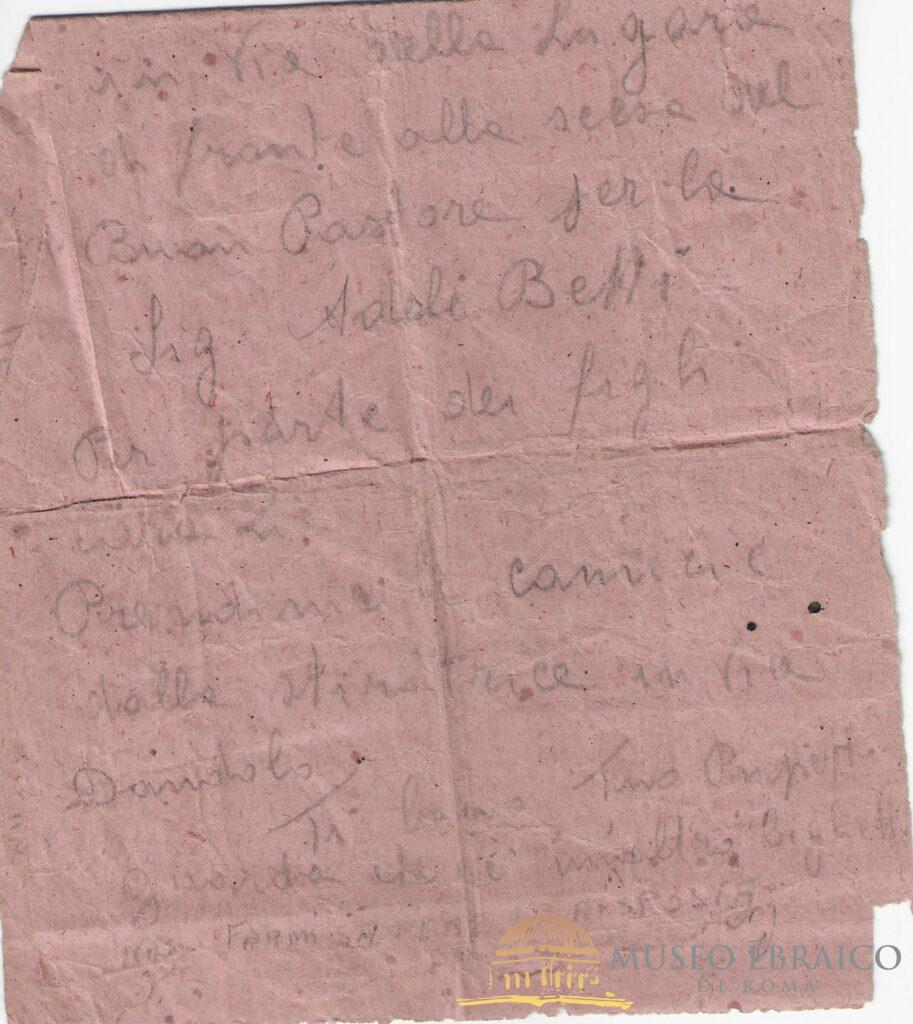 in Via della Lugara
di fronte alla scesa del
Buon Pastore per la
Sig. Adele Betti
Per parte dei figli
Prendimi camicie
dalla stiratrice in Via
Dandolo
Ti bacio Tuo
guarda che c'è un'altro biglietto
FARMI SAPERE RISPOSTA
MUSEO EBRAICO
DI ROMA